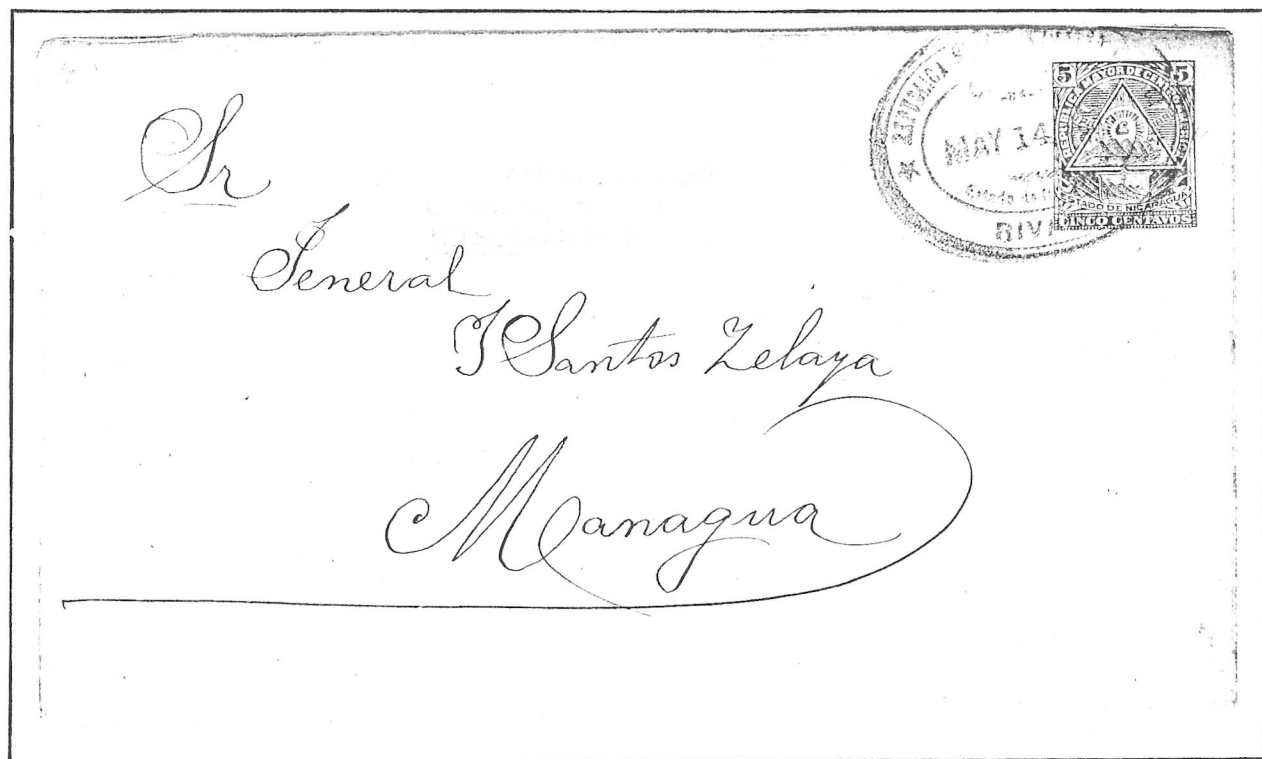 Sr
Jeneral
J Santos Zelaya
Managua
★ REPUBLICA
MAY 14
Estado de
RIVA
5 5
REPUBLICA MAYOR DE CENTRO
ESTADO DE NICARAGUA
CINCO CENTAVOS